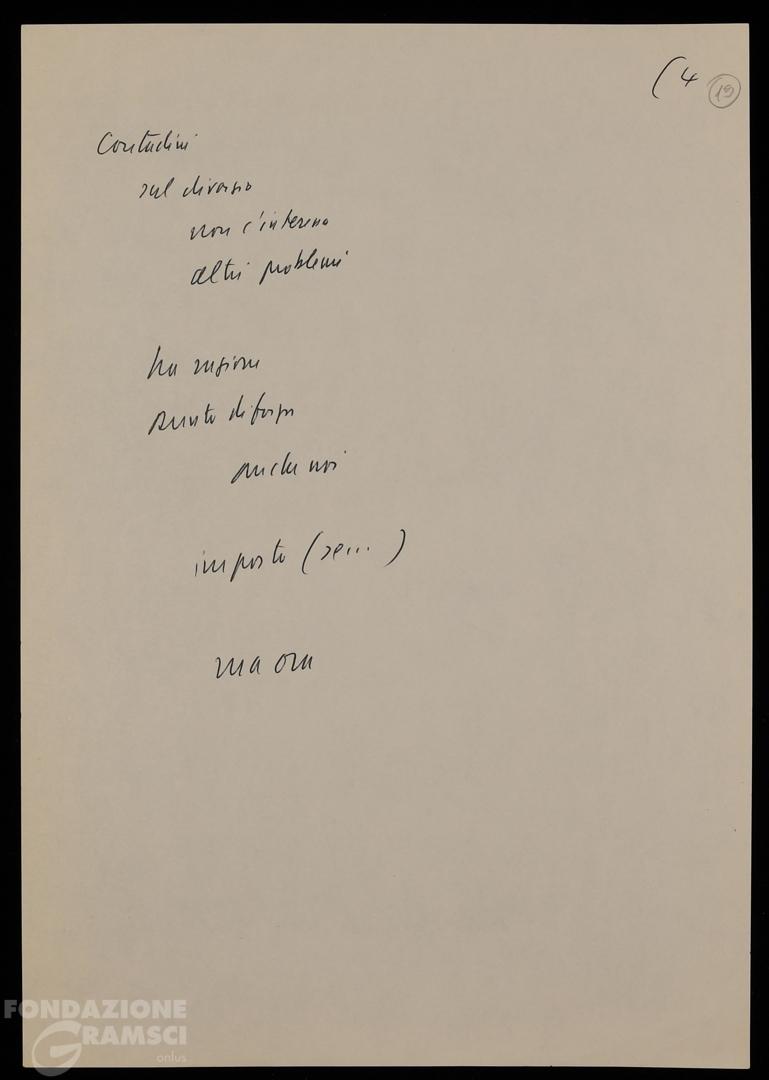 (4 19
Contadini
sul divorzio
non c'interessa
altri problemi
ha ragione
punto di forza
anche noi
imposto (se...)
ma ora
FONDAZIONE
GRAMSCI
onlus